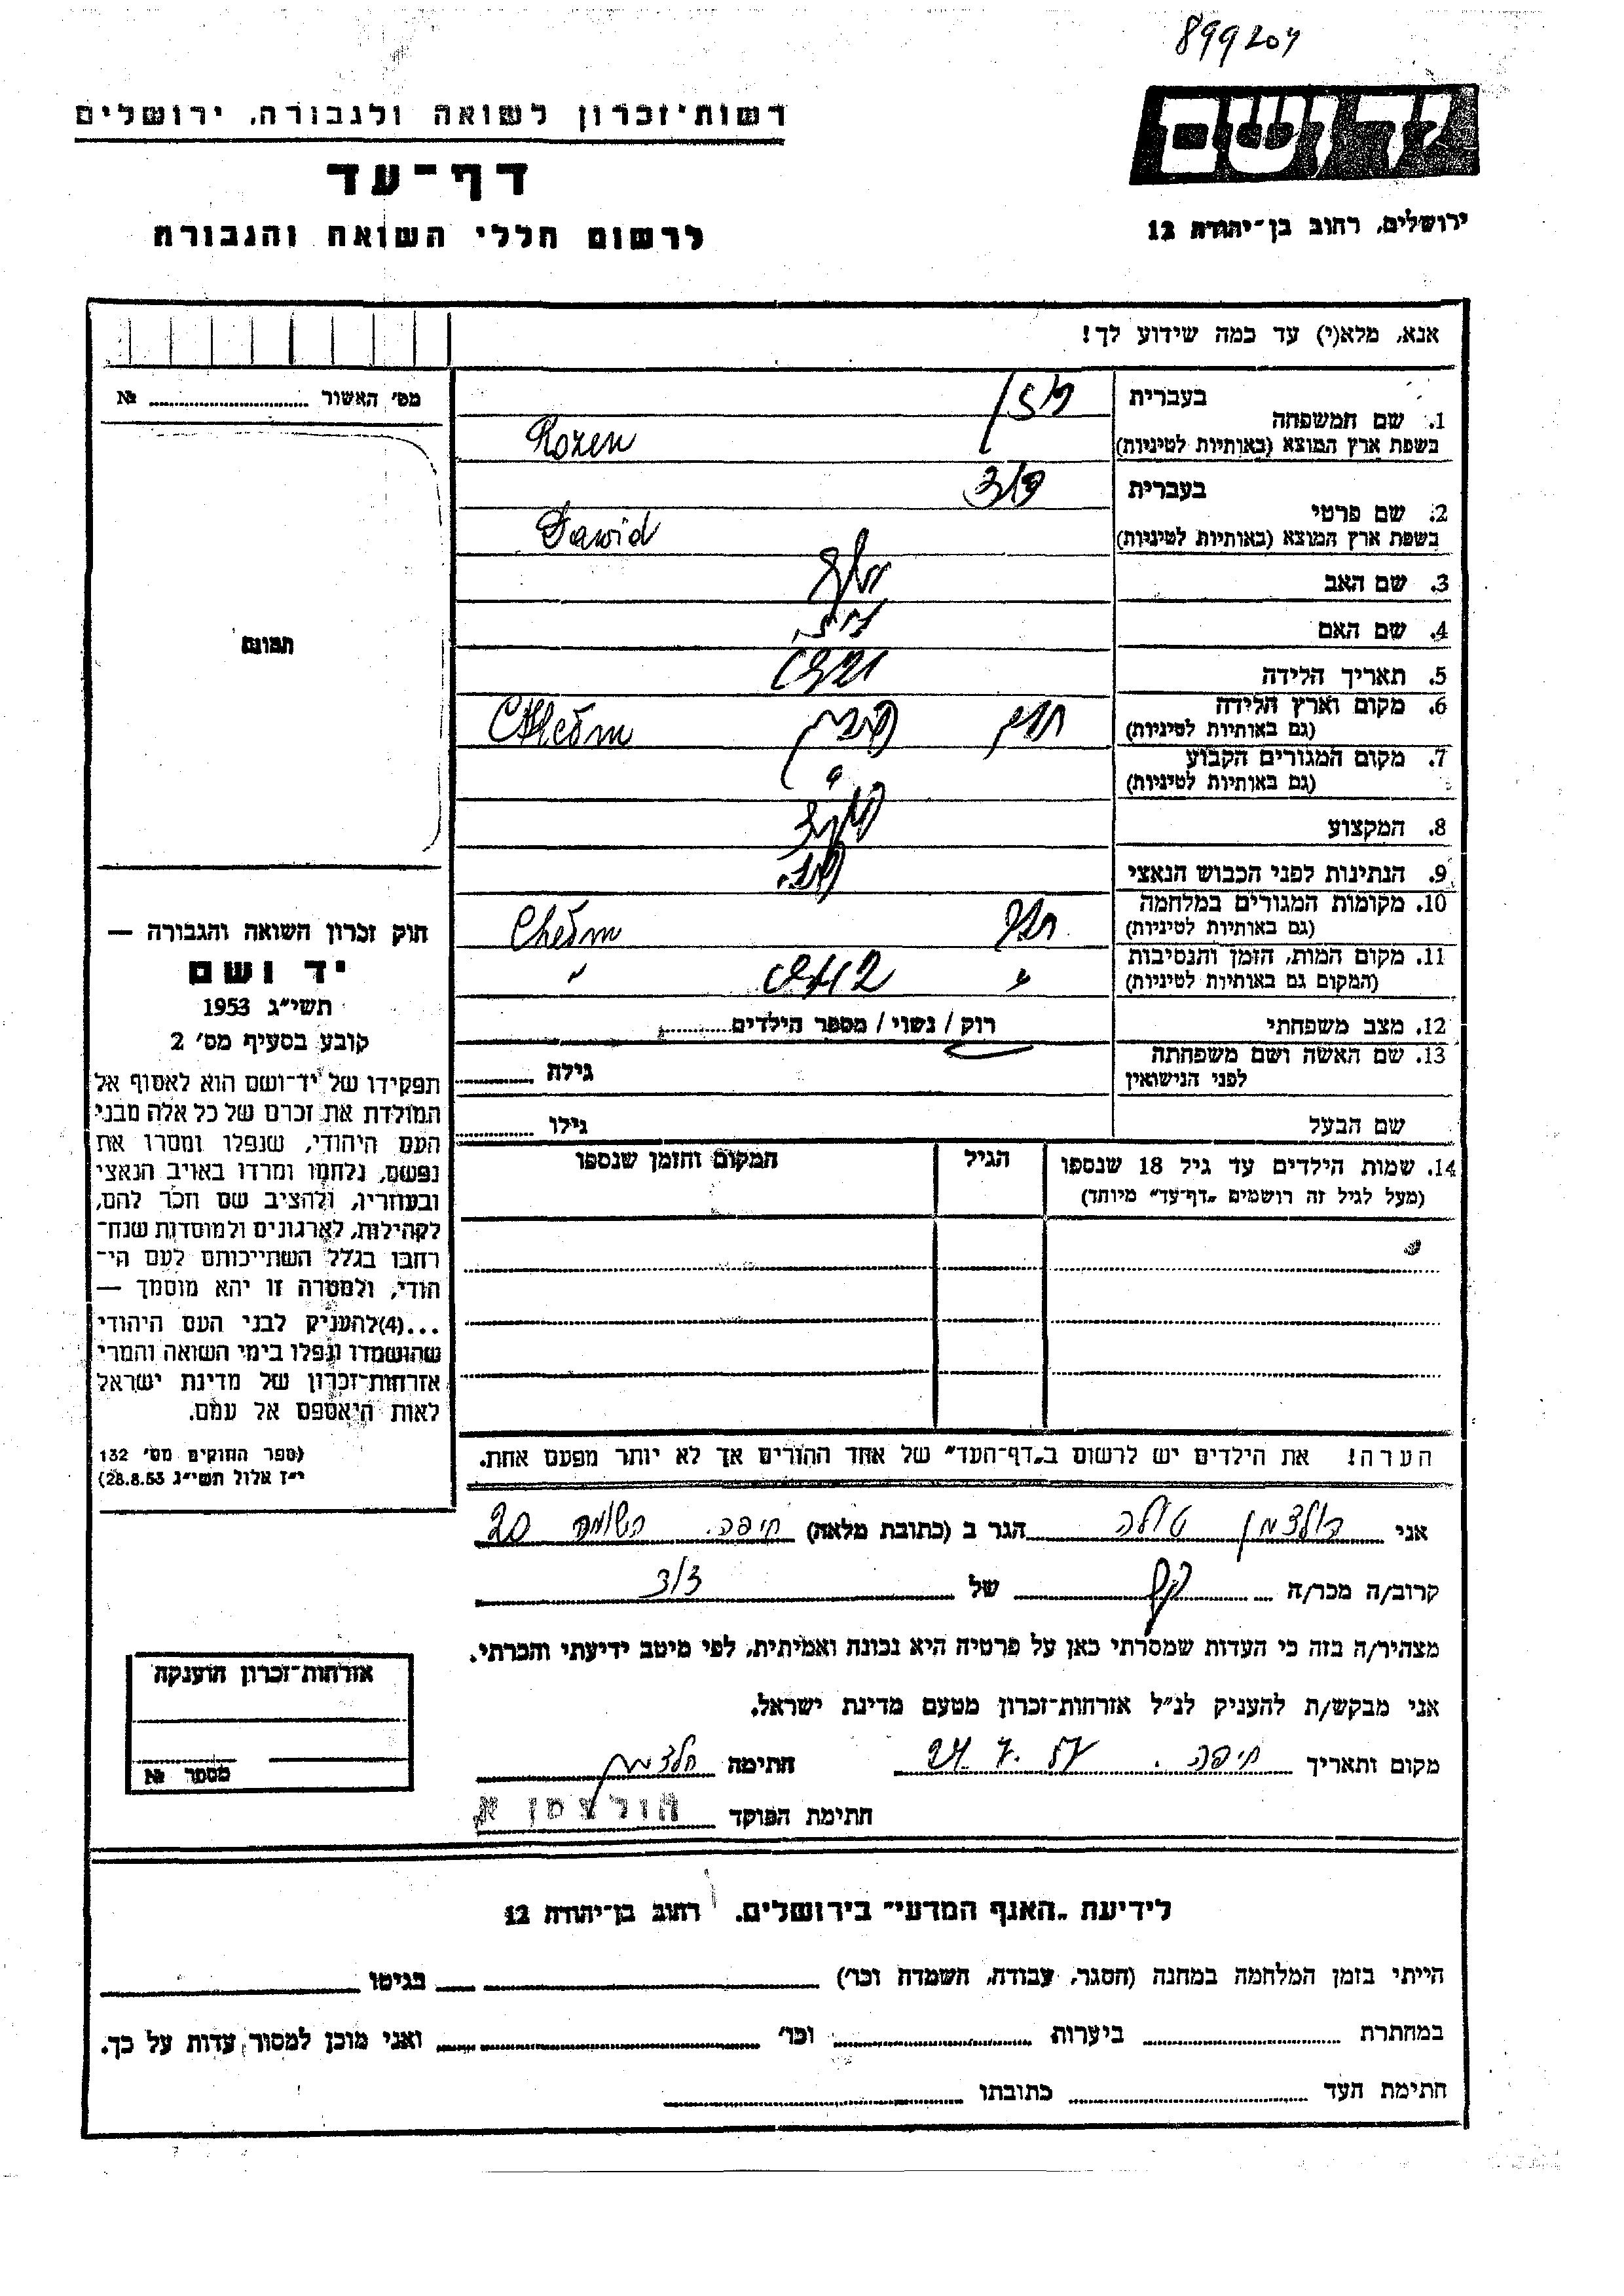 899204
רשות־זכרון לשואה ולגבורה, ירושלים
יד ושם
דף־עד
לרשום חללי השואה והגבורה
ירושלים, רחוב בן־יהודה 12
אנא, מלא(י) עד כמה שידוע לך!
מס׳ האשור № 
1. שם המשפחה
בעברית
רוזן
בשפת ארץ המוצא (באותיות לטיניות)
Rozen
2. שם פרטי
בעברית
דוד
בשפת ארץ המוצא (באותיות לטיניות)
Dawid
3. שם האב
4. שם האם
5. תאריך הלידה
6. מקום וארץ הלידה
(גם באותיות לטיניות)
חלם פולין Chełm
7. מקום המגורים הקבוע
(גם באותיות לטיניות)
8. המקצוע
9. הנתינות לפני הכבוש הנאצי
10. מקומות המגורים במלחמה
(גם באותיות לטיניות)
חלם Chełm
11. מקום המות, הזמן והנסיבות
(המקום גם באותיות לטיניות)
" "
12. מצב משפחתי
רוק / נשוי / מספר הילדים
13. שם האשה ושם משפחתה
לפני הנישואין
גילה
שם הבעל
גילו
14. שמות הילדים עד גיל 18 שנספו
(מעל לגיל זה רושמים „דף־עד" מיוחד)
הגיל
המקום והזמן שנספו
הערה! את הילדים יש לרשום ב„דף־העד" של אחד ההורים אך לא יותר מפעם אחת.
תמונה
חוק זכרון השואה והגבורה —
יד ושם
תשי״ג 1953
קובע בסעיף מס׳ 2
תפקידו של יד־ושם הוא לאסוף אל
המולדת את זכרם של כל אלה מבני
העם היהודי, שנפלו ומסרו את
נפשם, נלחמו ומרדו באויב הנאצי
ובעוזריו, ולהציב שם וזכר להם,
לקהילות, לארגונים ולמוסדות שנח־
רבו בגלל השתייכותם לעם הי־
הודי, ולמטרה זו יהא מוסמך —
...(4) להעניק לבני העם היהודי
שהושמדו ונפלו בימי השואה והמרי
אזרחות־זכרון של מדינת ישראל
לאות היאספם אל עמם.
(ספר החוקים מס׳ 132
י״ז אלול תשי״ג 28.8.53)
אני הולצמן טולה הגר ב (כתובת מלאה) חיפה.
קרוב/ה מכר/ה של דוד
מצהיר/ה בזה כי העדות שמסרתי כאן על פרטיה היא נכונה ואמיתית, לפי מיטב ידיעתי והכרתי.
אני מבקש/ת להעניק לנ״ל אזרחות־זכרון מטעם מדינת ישראל.
מקום ותאריך חיפה. 24.7.57 חתימה
חתימת הפוקד הולצמן א.
אזרחות־זכרון הוענקה
מספר №
לידיעת „האגף המדעי" בירושלים. רחוב בן־יהודה 12
הייתי בזמן המלחמה במחנה (הסגר, עבודה, השמדה וכו׳) בגיטו
במחתרת ביערות וכו׳ ואני מוכן למסור עדות על כך.
חתימת העד כתובתו